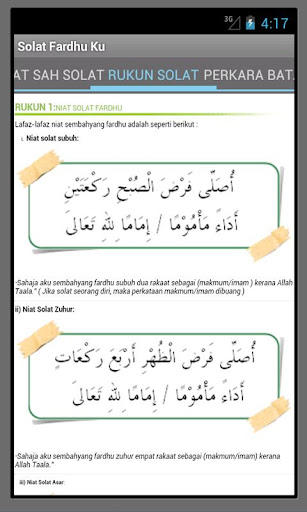 3G 4:17
Solat Fardhu Ku
AT SAH SOLAT RUKUN SOLAT PERKARA BAT
RUKUN 1:NIAT SOLAT FARDHU
Lafaz-lafaz niat sembahyang fardhu adalah seperti berikut :
i. Niat solat subuh:
أُصَلِّى فَرْضَ الْصُبْحِ رَكْعَتَيْنِ
أَدَاءً مَأْمُوْمًا / إِمَامًا لِلهِ تَعَالىَ
-Sahaja aku sembahyang fardhu subuh dua rakaat sebagai (makmum/imam ) kerana Allah
Taala." ( Jika solat seorang diri, maka perkataan makmum/imam dibuang )
ii) Niat Solat Zuhur:
أُصَلِّى فَرْضَ الْظُهْرِ أَرْبَعَ رَكْعَاتٍ
أَدَاءً مَأْمُوْمًا / إِمَامًا لِلهِ تَعَالىَ
-Sahaja aku sembahyang fardhu zuhur empat rakaat sebagai (makmum/imam) kerana
Allah Taala."
iii) Niat Solat Asar: